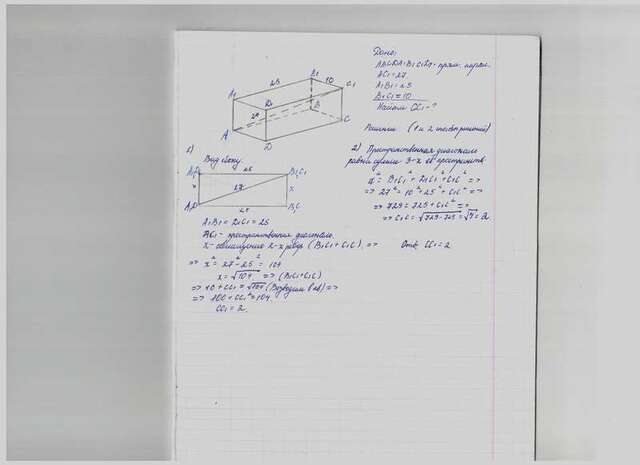 Дано:
ABCDA1B1C1D1 - прям. парал.
AC1 = 27
A1B1 = 25
B1C1 = 10
Найти CC1 - ?
Решение (1 и 2
25
B1
10
C1
A1
D1
27
B
A
C
D
1)
Вид сбоку.
25
A1D1
B1C1
x
27
x
A,D
B,C
25
A1B1 = D1C1 = 25
AC1 - пространственная диагональ.
x - 2-х ребер (B1C1 + C1C) =>
=> x² = 27² - 25² = 104
x = √104 => (B1C1 + C1C)
=> 10 + CC1 = √104 (Возводим в кв) =>
=> 100 + CC1² = 104
CC1 = 2.
2) Пространственная диагональ
равна сумме 3-х её пространств
d² = B1C1² + D1C1² + C1C² =>
=> 27² = 10² + 25² + C1C² =>
=> 729 = 725 + C1C² =>
=> C1C = √729-725 = √4 = 2.
Отв: CC1 = 2